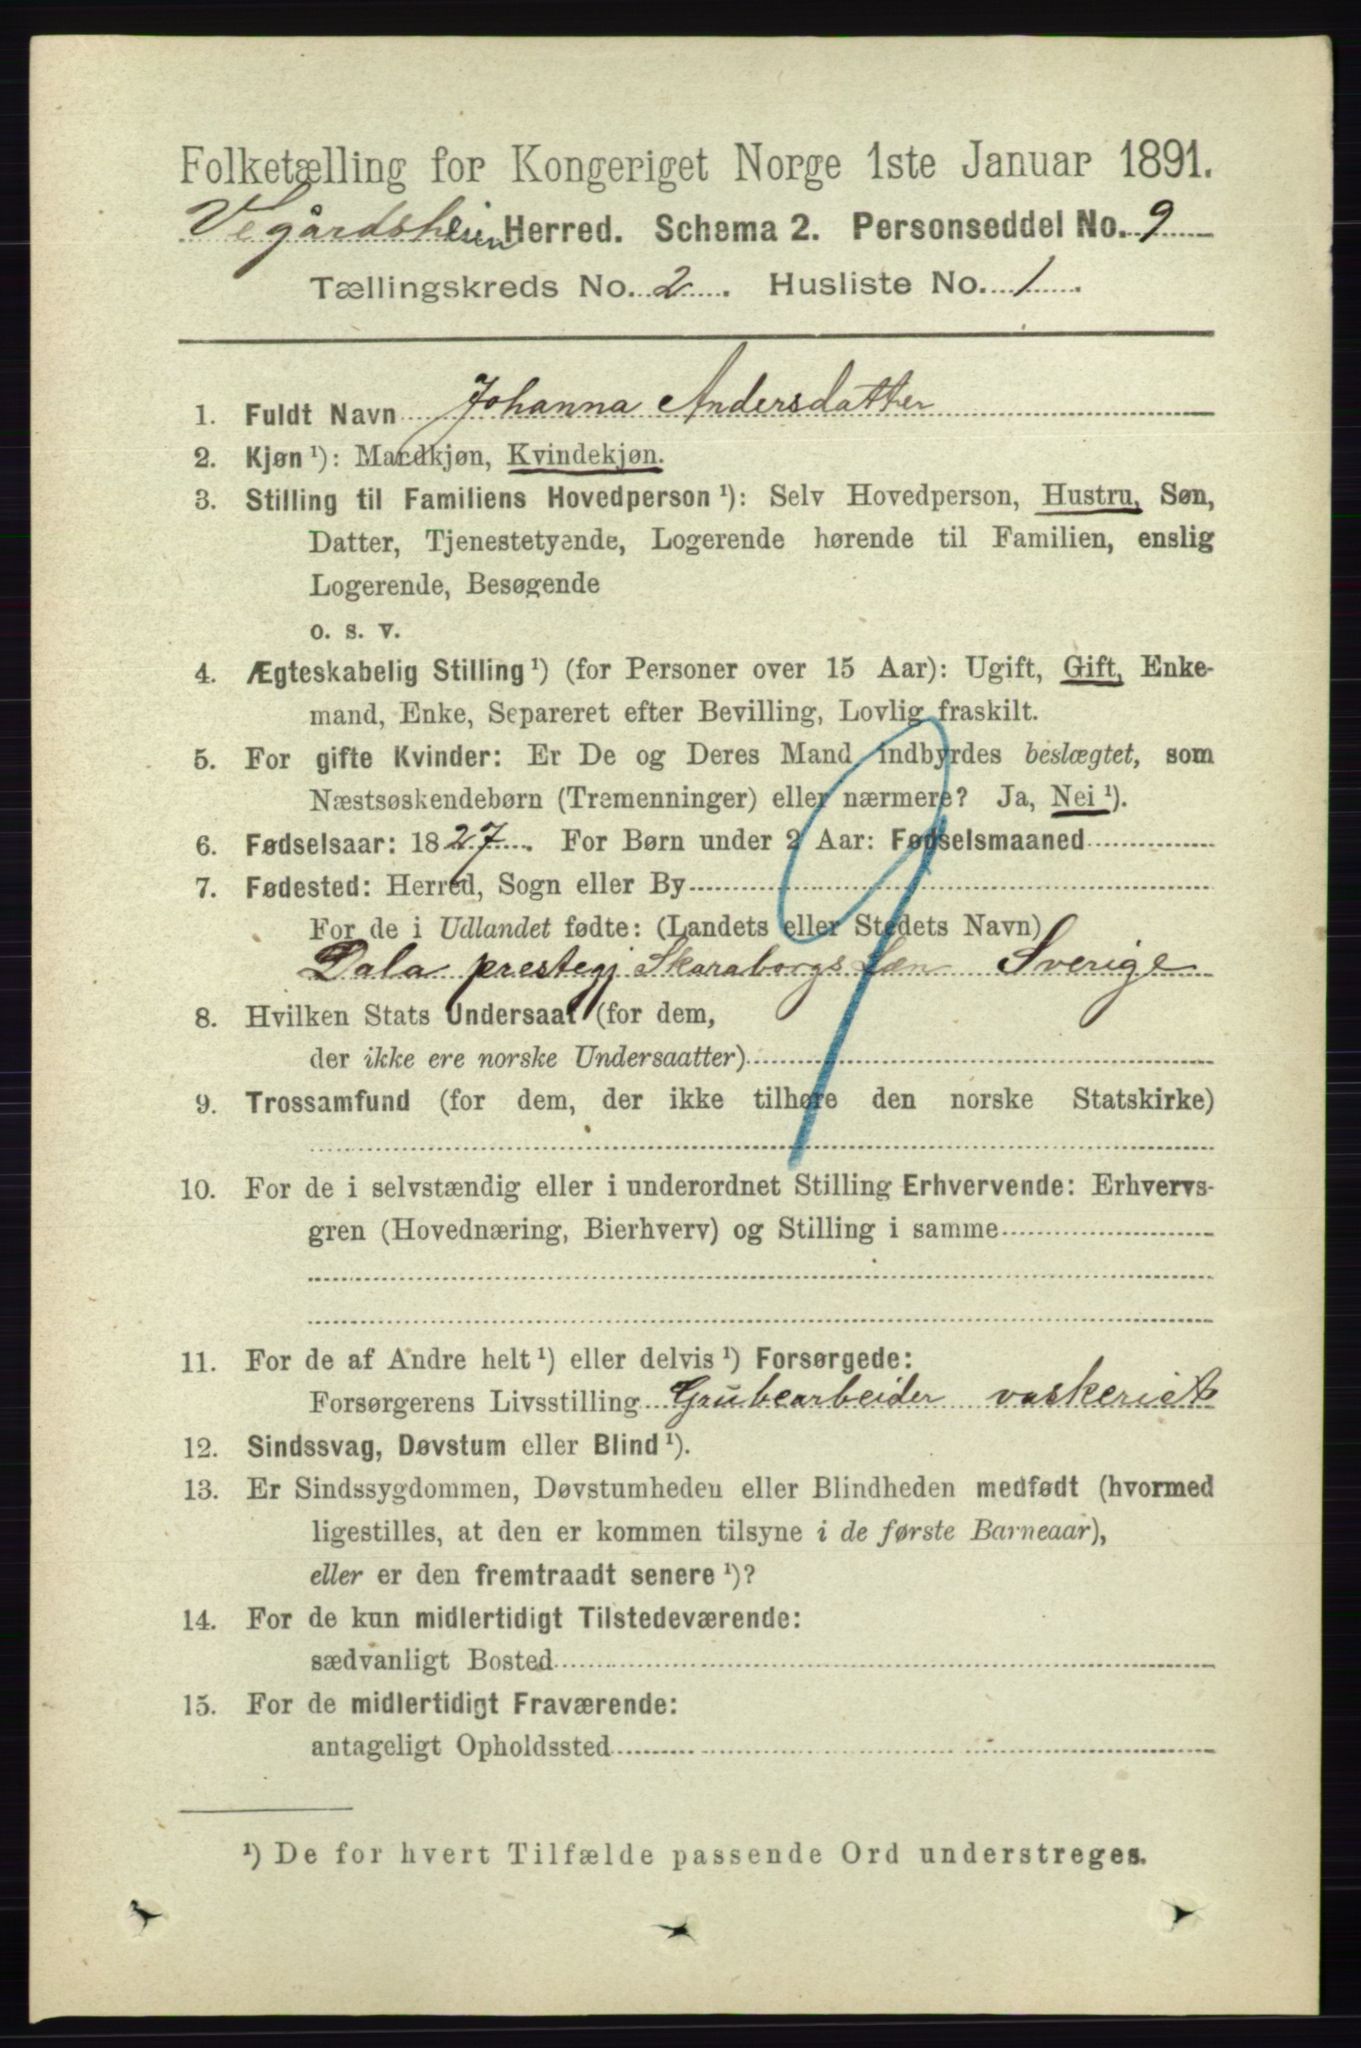 Folketælling for Kongeriget Norge 1ste Januar 1891.
Vegårdsheien Herred. Schema 2. Personseddel No. 9
Tællingskreds No. 2. Husliste No. 1.
1. Fuldt Navn Johanna Andersdatter
2. Kjøn ¹): Mandkjøn, Kvindekjøn.
3. Stilling til Familiens Hovedperson ¹): Selv Hovedperson, Hustru, Søn,
Datter, Tjenestetyende, Logerende hørende til Familien, enslig
Logerende, Besøgende
o. s. v.
4. Ægteskabelig Stilling ¹) (for Personer over 15 Aar): Ugift, Gift, Enke-
mand, Enke, Separeret efter Bevilling, Lovlig fraskilt.
5. For gifte Kvinder: Er De og Deres Mand indbyrdes beslægtet, som
Næstsøskendebørn (Tremenninger) eller nærmere? Ja, Nei ¹).
6. Fødselsaar: 1827. For Børn under 2 Aar: Fødselsmaaned
7. Fødested: Herred, Sogn eller By
For de i Udlandet fødte: (Landets eller Stedets Navn)
Dala prestegj Skaraborgs Læn Sverige
8. Hvilken Stats Undersaat (for dem,
der ikke ere norske Undersaatter)
9. Trossamfund (for dem, der ikke tilhøre den norske Statskirke)
10. For de i selvstændig eller i underordnet Stilling Erhvervende: Erhvervs-
gren (Hovednæring, Bierhverv) og Stilling i samme
11. For de af Andre helt ¹) eller delvis ¹) Forsørgede:
Forsørgerens Livsstilling Grubearbeider vaskeriet
12. Sindssvag, Døvstum eller Blind ¹).
13. Er Sindssygdommen, Døvstumheden eller Blindheden medfødt (hvormed
ligestilles, at den er kommen tilsyne i de første Barneaar),
eller er den fremtraadt senere ¹)?
14. For de kun midlertidigt Tilstedeværende:
sædvanligt Bosted
15. For de midlertidigt Fraværende:
antageligt Opholdssted
9
¹) De for hvert Tilfælde passende Ord understreges.